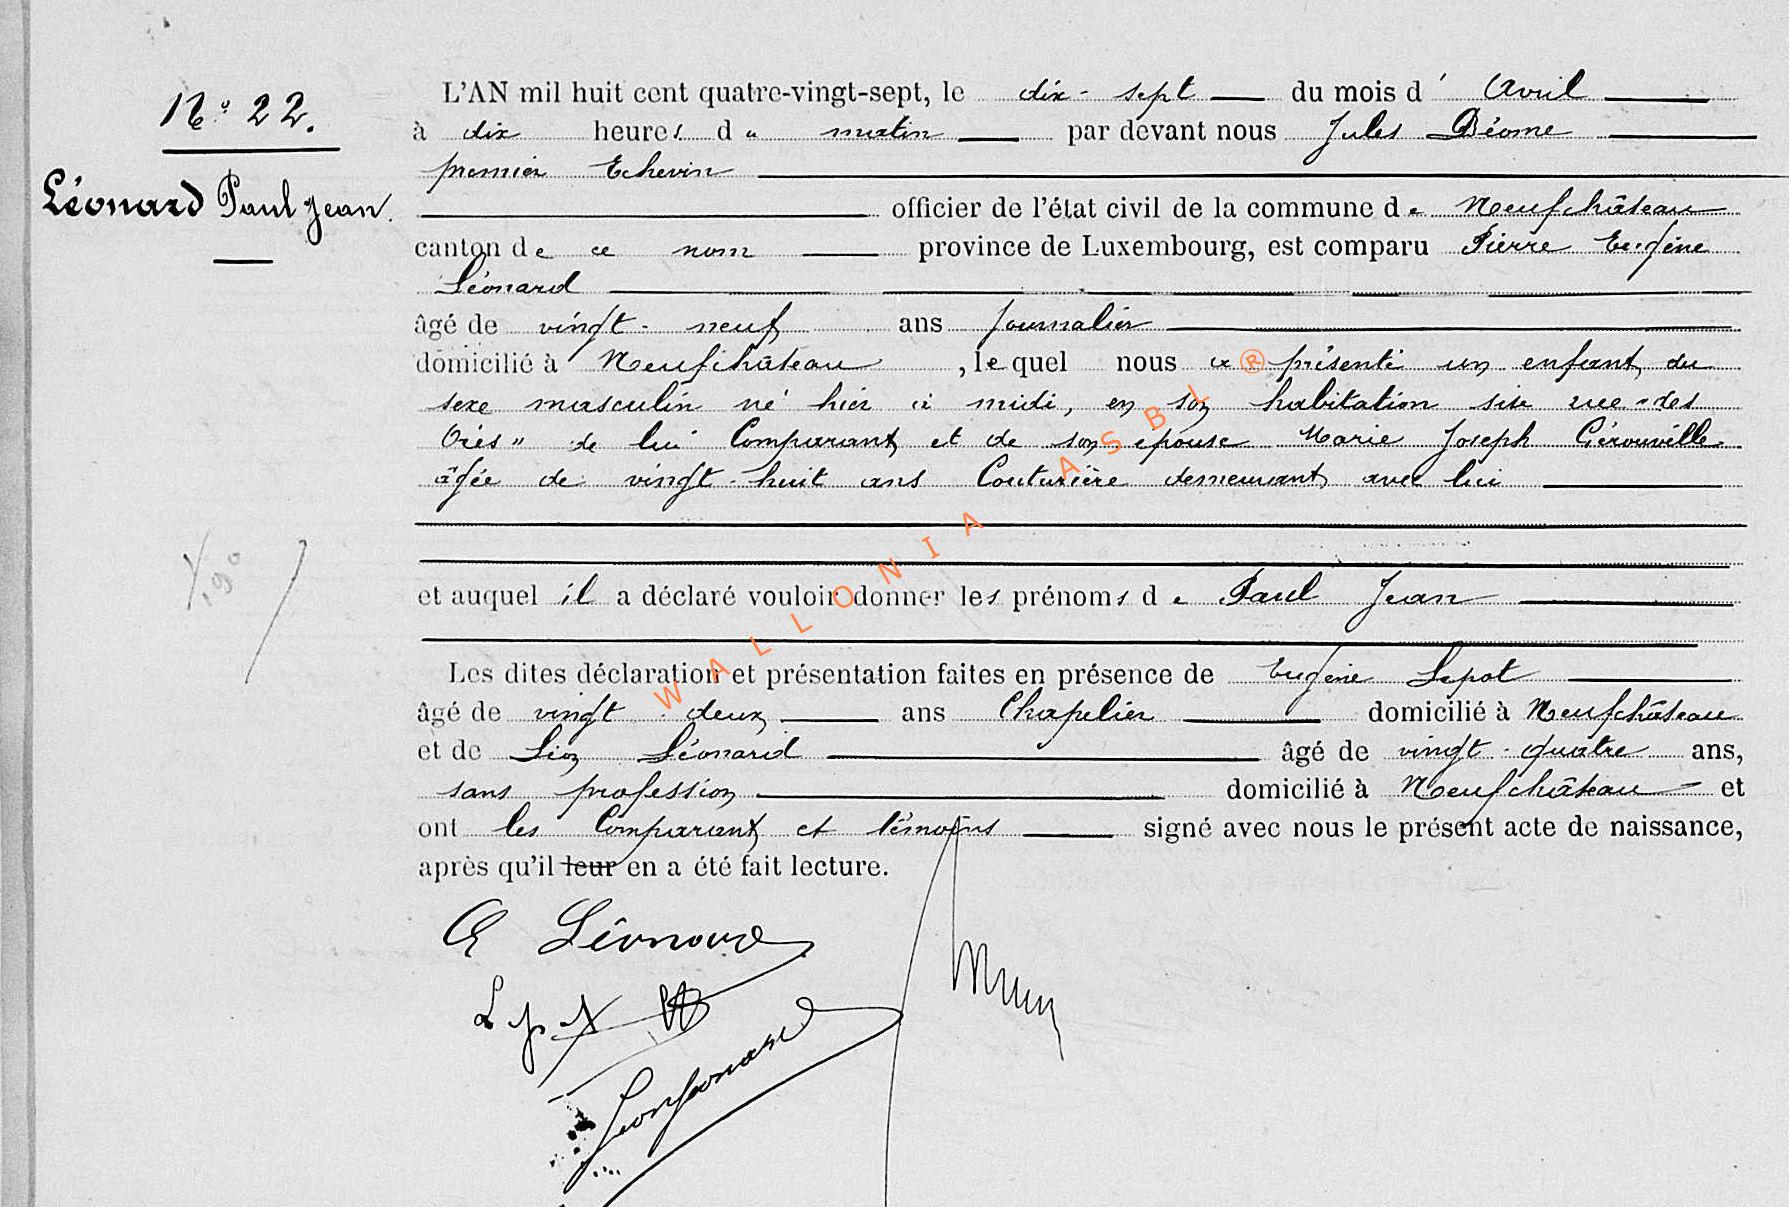 N° 22.
Léonard Paul Jean.
L'AN mil huit cent quatre-vingt-sept, le dix-sept du mois d' Avril
à dix heures du matin par devant nous Jules Déome
premier Echevin
officier de l'état civil de la commune de Neufchâteau
canton de ce nom province de Luxembourg, est comparu Pierre Eugène
Léonard
âgé de vingt-neuf ans journalier
domicilié à Neufchâteau, lequel nous a présenté un enfant du
sexe masculin né hier à midi, en son habitation sise rue "des
" de lui Comparant et de son épouse Marie Joseph Gérouville
âgée de vingt-huit ans Couturière demeurant avec lui
et auquel il a déclaré vouloir donner les prénoms de Paul Jean
Les dites déclaration et présentation faites en présence de Eugène Lepot
âgé de vingt-deux ans Chapelier domicilié à Neufchâteau
et de Léon Léonard âgé de vingt-quatre ans,
sans profession domicilié à Neufchâteau et
ont les Comparant et témoins signé avec nous le présent acte de naissance,
après qu'il leur en a été fait lecture.
Léonard
Léonard
WALLONIA ASBL ®